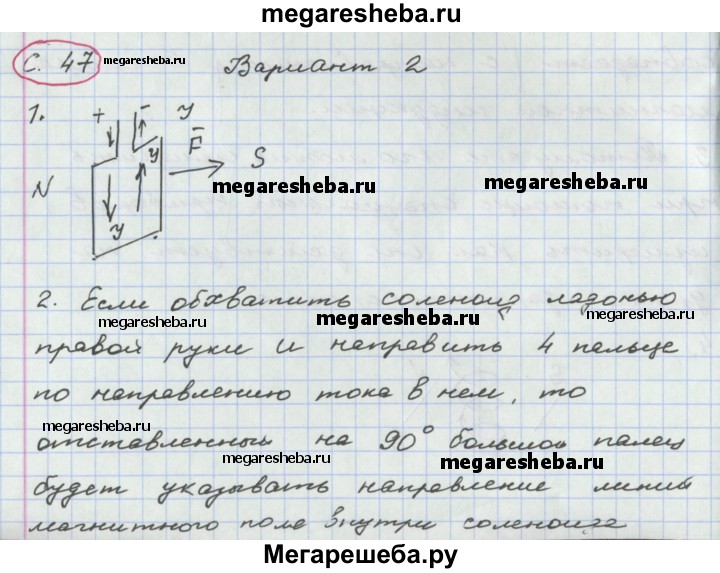 megaresheba.ru
С. 47 megaresheba.ru Вариант 2
1. + - У
У F S
megaresheba.ru megaresheba.ru
N
У
2. Если обхватить соленоид ладонью
megaresheba.ru megaresheba.ru megaresheba.ru
правой руки и направить 4 пальце
по направлению тока в нем, то
megaresheba.ru
отставленный на 90° большой палец
megaresheba.ru megaresheba.ru
будет указывать направление линий
megaresheba.ru
магнитного поле внутри соленоида
Мегарешеба.ру